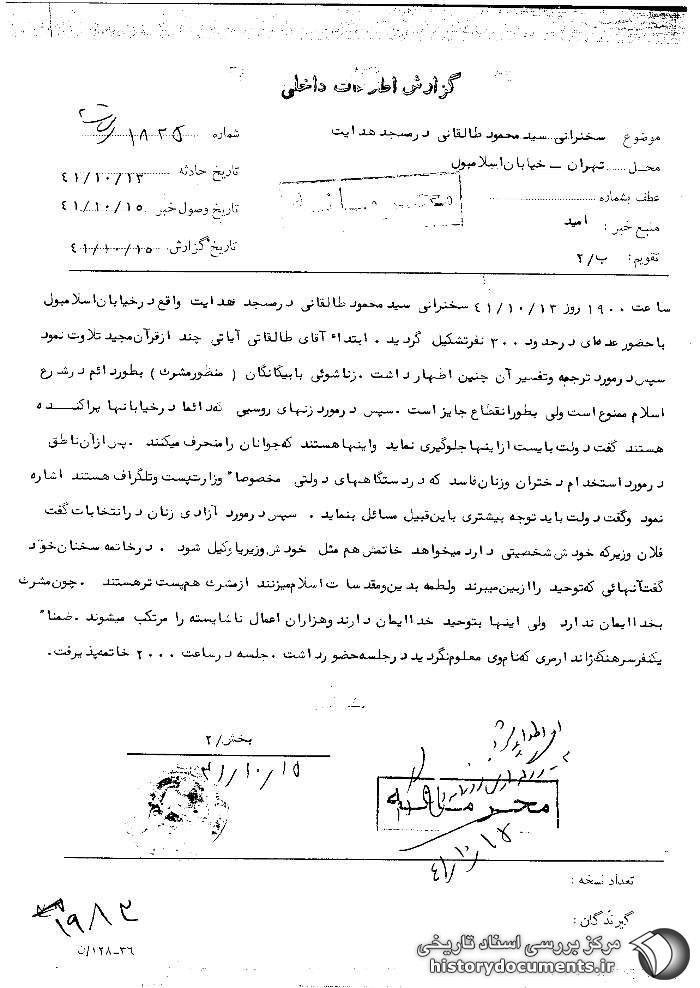 گزارش اطلاعات داخلی
موضوع سخنرانی سید محمود طالقانی در مسجد هدایت
شماره ۱۸۲۵
محل تهران ــ خیابان اسلامبول
تاریخ حادثه ۴۱/۱۰/۱۳
عطف بشماره
محرمانه
تاریخ وصول خبر ۴۱/۱۰/۱۵
منبع خبر : امید
تاریخ گزارش ۴۱/۱۰/۱۵
تقویم : ب/۲
ساعت ۱۹۰۰ روز ۴۱/۱۰/۱۳ سخنرانی سید محمود طالقانی در مسجد هدایت واقع در خیابان اسلامبول
با حضور عده‌ای در حدود ۳۰۰ نفر تشکیل گردید . ابتداء آقای طالقانی آیاتی چند از قرآن مجید تلاوت نمود
سپس در مورد ترجمه وتفسیر آن چنین اظهار داشت . زناشوئی با بیگانگان ( منظور مشرک ) بطور دائم در شرع
اسلام ممنوع است ولی بطور انقطاع جایز است . سپس در مورد زنهای روسپی که دائما در خیابانها پراکنده
هستند گفت دولت بایست از اینها جلوگیری نماید واینها هستند که جوانان را منحرف میکنند . پس از آن ناطق
در مورد استخدام دختران وزنان فاسد که در دستگاههای دولتی مخصوصا" وزارت پست وتلگراف هستند اشاره
نمود وگفت دولت باید توجه بیشتری باین قبیل مسائل بنماید . سپس در مورد آزادی زنان در انتخابات گفت
فلان وزیر که خودش شخصیتی دارد میخواهد خانمش هم مثل خودش وزیر یا وکیل شود . در خاتمه سخنان خود
گفت آنهائی که توحید را از بین میبرند ولطمه بدین ومقدسات اسلام میزنند از مشرک هم پست تر هستند . چون مشرک
بخدا ایمان ندارد ولی اینها بتوحید خدا ایمان دارند وهزاران اعمال ناشایسته را مرتکب میشوند . ضمنا"
یکنفر سرهنگ ژاندارمری که نام وی معلوم نگردید در جلسه حضور داشت . جلسه در ساعت ۲۰۰۰ خاتمه پذیرفت .
بخش/۲
۴۱/۱۰/۱۵
محرمانه
۴۱/۱۰/۱۵
تعداد نسخه :
گیرندگان :
۱۹۸۳
۳۶ــ۱۲۸/ن
مرکز بررسی اسناد تاریخی
historydocuments.ir